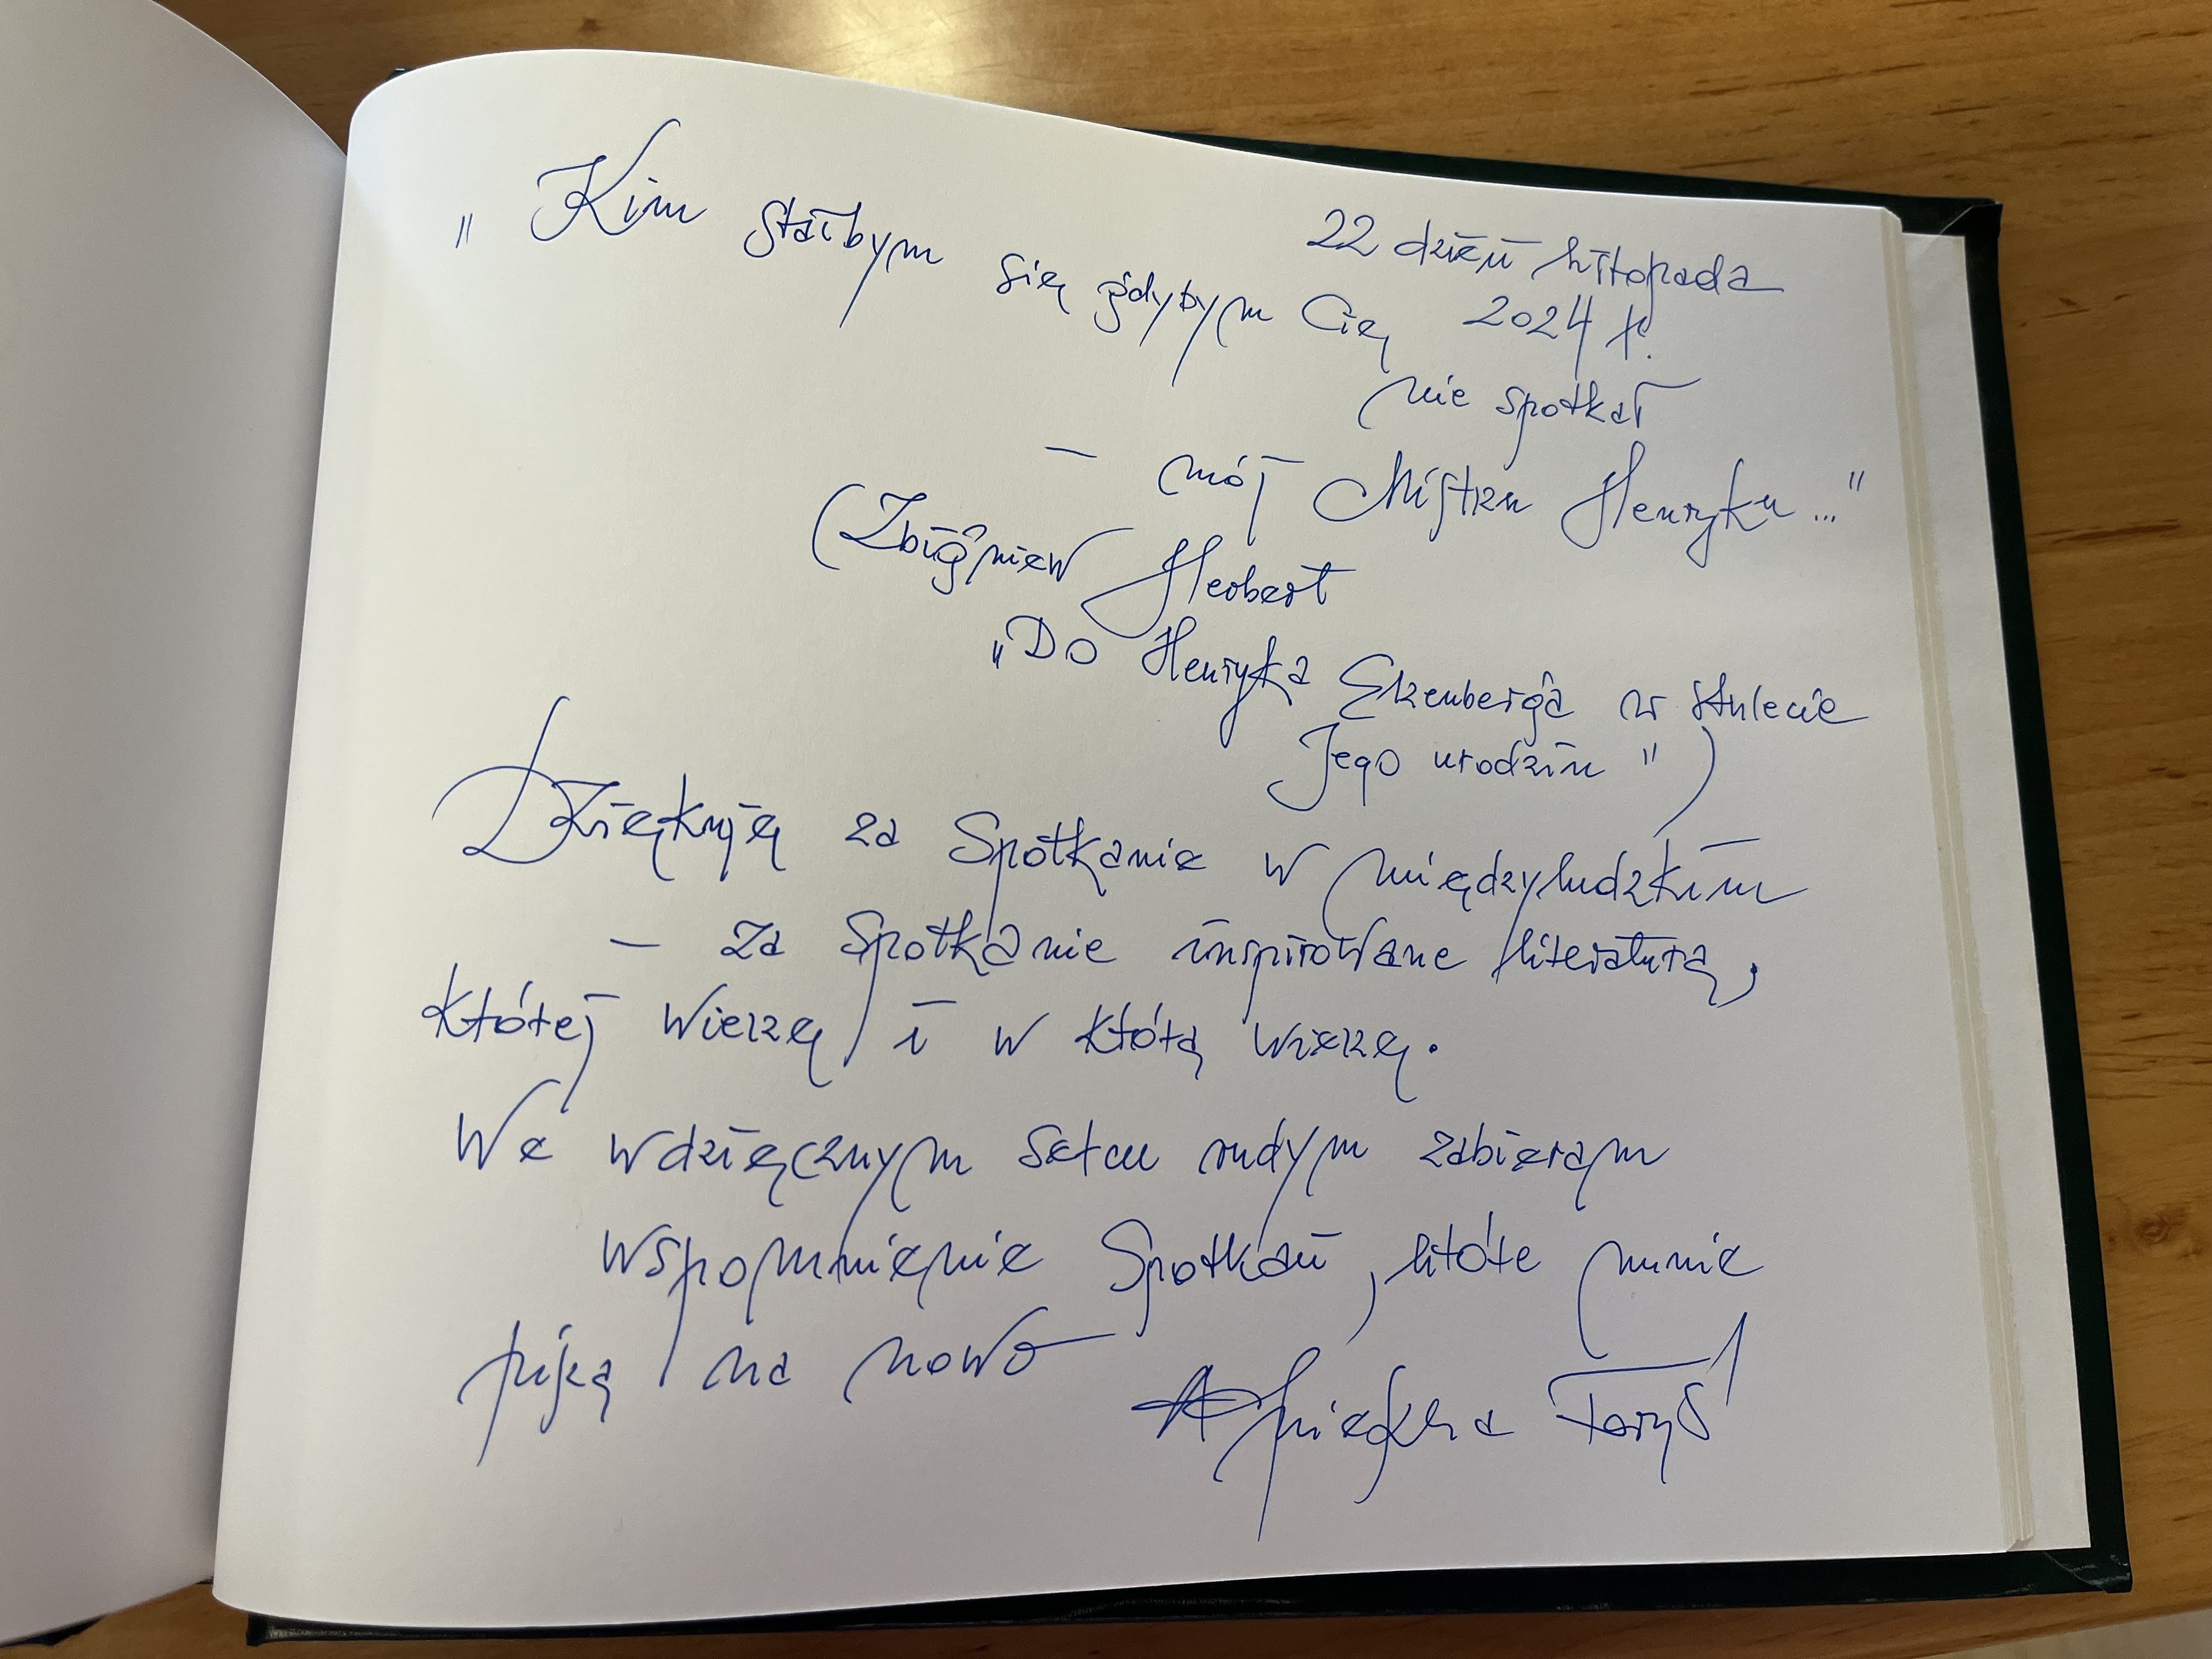 22 dzień listopada
2024 r.
" Kim stałbym się gdybym Cię
nie spotkał
– mój Mistrzu Henryku ..."
(Zbigniew Herbert
"Do Henryka Elzenberga w stulecie
Jego urodzin")
Dziękuję za Spotkanie w międzyludzkim
– za Spotkanie inspirowane literaturą,
której wierzę i w którą wierzę.
We wdzięcznym sercu rudym zabieram
wspomnienie Spotkań, które mnie
piszą na nowo
Agnieszka